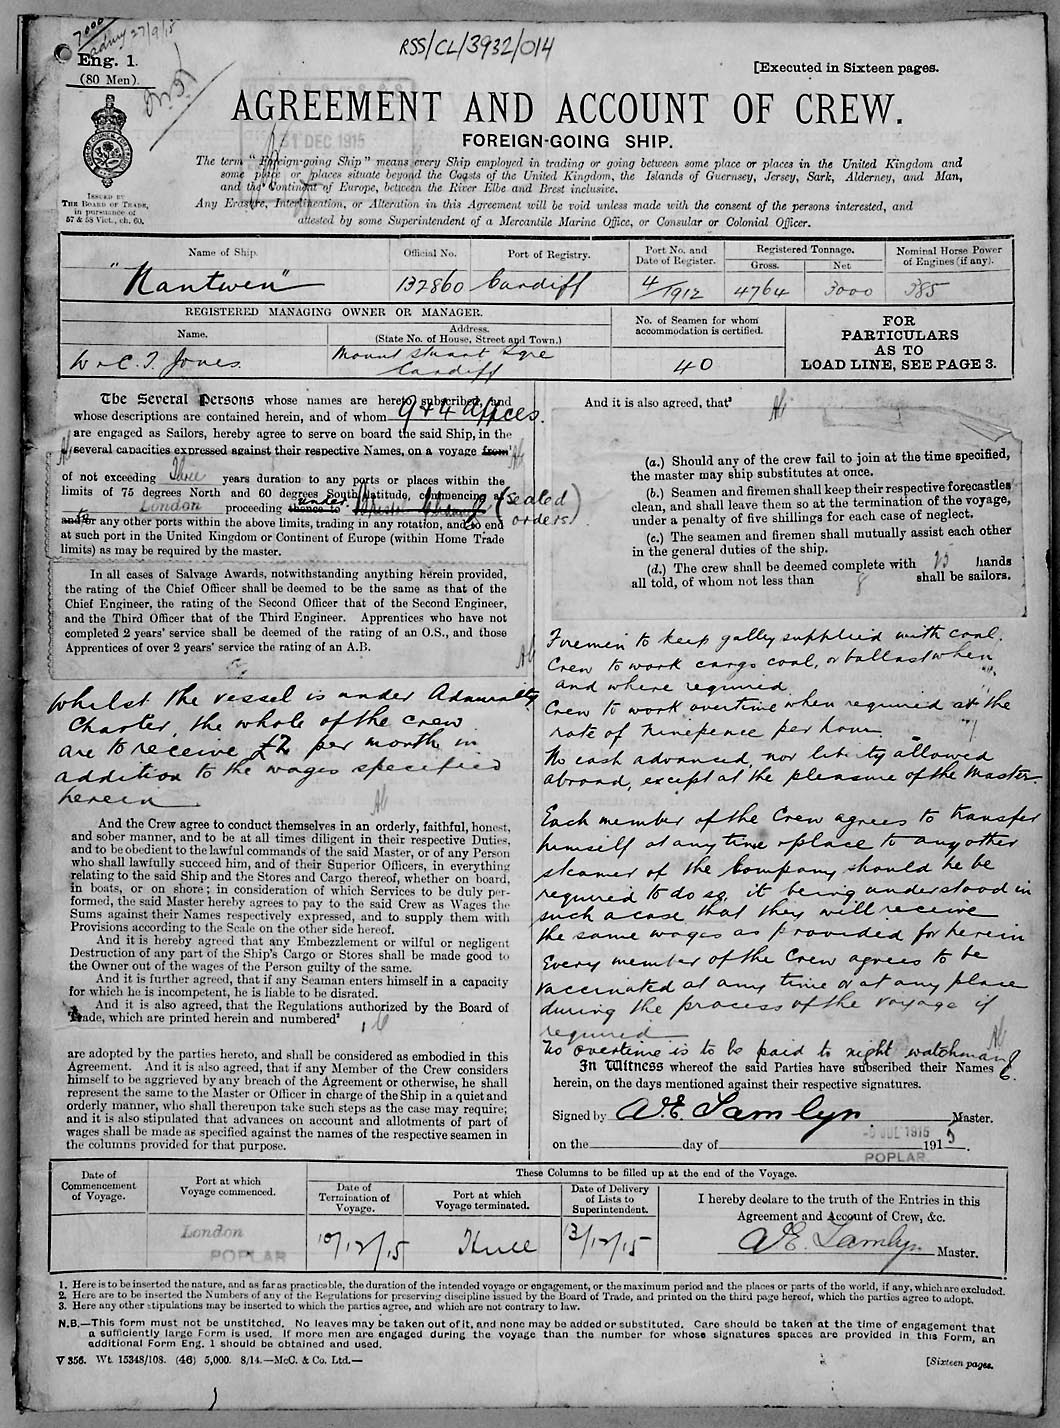 7000
adm'y 27/9/15
RSS/CL/3932/014
Eng. 1.
(80 Men).
[Executed in Sixteen pages.
AGREEMENT AND ACCOUNT OF CREW.
FOREIGN-GOING SHIP.
31 DEC 1915
ISSUED BY
THE BOARD OF TRADE,
in pursuance of
57 & 58 Vict., ch. 60.
The term "Foreign-going Ship" means every Ship employed in trading or going between some place or places in the United Kingdom and
some place or places situate beyond the Coasts of the United Kingdom, the Islands of Guernsey, Jersey, Sark, Alderney, and Man,
and the Continent of Europe, between the River Elbe and Brest inclusive.
Any Erasure, Interlineation, or Alteration in this Agreement will be void unless made with the consent of the persons interested, and
attested by some Superintendent of a Mercantile Marine Office, or Consular or Colonial Officer.
Name of Ship. Official No. Port of Registry. Port No. and Date of Register. Registered Tonnage. Gross. Net Nominal Horse Power of Engines (if any).
"Nantwen" 132860 Cardiff 4/1912 4764 3000 385
REGISTERED MANAGING OWNER OR MANAGER.
Name. Address. (State No. of House, Street and Town.)
No. of Seamen for whom accommodation is certified.
W & C. T. Jones. Mount Stuart Sqre
Cardiff
40
FOR
PARTICULARS
AS TO
LOAD LINE, SEE PAGE 3.
The Several Persons whose names are hereto subscribed, and
whose descriptions are contained herein, and of whom
are engaged as Sailors, hereby agree to serve on board the said Ship, in the
several capacities expressed against their respective Names, on a voyage from
of not exceeding Three years duration to any ports or places within the
limits of 75 degrees North and 60 degrees South latitude, commencing at
London proceeding thence to under (sealed
and/or any other ports within the above limits, trading in any rotation, and to end orders)
at such port in the United Kingdom or Continent of Europe (within Home Trade
limits) as may be required by the master.
In all cases of Salvage Awards, notwithstanding anything herein provided,
the rating of the Chief Officer shall be deemed to be the same as that of the
Chief Engineer, the rating of the Second Officer that of the Second Engineer,
and the Third Officer that of the Third Engineer. Apprentices who have not
completed 2 years' service shall be deemed of the rating of an O.S., and those
Apprentices of over 2 years' service the rating of an A.B.
Whilst the vessel is under Admiralty
Charter, the whole of the crew
are to receive £2 per month in
addition to the wages specified
herein
And the Crew agree to conduct themselves in an orderly, faithful, honest,
and sober manner, and to be at all times diligent in their respective Duties,
and to be obedient to the lawful commands of the said Master, or of any Person
who shall lawfully succeed him, and of their Superior Officers, in everything
relating to the said Ship and the Stores and Cargo thereof, whether on board,
in boats, or on shore; in consideration of which Services to be duly per-
formed, the said Master hereby agrees to pay to the said Crew as Wages the
Sums against their Names respectively expressed, and to supply them with
Provisions according to the Scale on the other side hereof.
And it is hereby agreed that any Embezzlement or wilful or negligent
Destruction of any part of the Ship's Cargo or Stores shall be made good to
the Owner out of the wages of the Person guilty of the same.
And it is further agreed, that if any Seaman enters himself in a capacity
for which he is incompetent, he is liable to be disrated.
And it is also agreed, that the Regulations authorized by the Board of
Trade, which are printed herein and numbered²
are adopted by the parties hereto, and shall be considered as embodied in this
Agreement. And it is also agreed, that if any Member of the Crew considers
himself to be aggrieved by any breach of the Agreement or otherwise, he shall
represent the same to the Master or Officer in charge of the Ship in a quiet and
orderly manner, who shall thereupon take such steps as the case may require;
and it is also stipulated that advances on account and allotments of part of
wages shall be made as specified against the names of the respective seamen in
the columns provided for that purpose.
And it is also agreed, that³
(a.) Should any of the crew fail to join at the time specified,
the master may ship substitutes at once.
(b.) Seamen and firemen shall keep their respective forecastles
clean, and shall leave them so at the termination of the voyage,
under a penalty of five shillings for each case of neglect.
(c.) The seamen and firemen shall mutually assist each other
in the general duties of the ship.
(d.) The crew shall be deemed complete with hands
all told, of whom not less than 8 shall be sailors.
Firemen to keep galley supplied with coal.
Crew to work cargo coal, or ballast when
and where required
Crew to work overtime when required at the
rate of ninepence per hour
No cash advanced, nor liberty allowed
abroad, except at the pleasure of the Master
Each member of the Crew agrees to transfer
himself at any time & place to any other
steamer of the Company should he be
required to do so, it being understood in
such a case that they will receive
the same wages as provided for herein
Every member of the Crew agrees to be
vaccinated at any time or at any place
during the process of the voyage if
required
No overtime is to be paid to night watchman
In Witness whereof the said Parties have subscribed their Names
herein, on the days mentioned against their respective signatures.
Signed by A. E. Lamlyn Master.
on the day of 1915.
JUL 1915
POPLAR.
These Columns to be filled up at the end of the Voyage.
Date of Commencement of Voyage. Port at which Voyage commenced. Date of Termination of Voyage. Port at which Voyage terminated. Date of Delivery of Lists to Superintendent.
London
POPLAR
10/12/15 Hull 13/12/15
I hereby declare to the truth of the Entries in this
Agreement and Account of Crew, &c.
A. E. Lamlyn Master.
1. Here is to be inserted the nature, and as far as practicable, the duration of the intended voyage or engagement, or the maximum period and the places or parts of the world, if any, which are excluded.
2. Here are to be inserted the Numbers of any of the Regulations for preserving discipline issued by the Board of Trade, and printed on the third page hereof, which the parties agree to adopt.
3. Here any other stipulations may be inserted to which the parties agree, and which are not contrary to law.
N.B.—This form must not be unstitched. No leaves may be taken out of it, and none may be added or substituted. Care should be taken at the time of engagement that
a sufficiently large Form is used. If more men are engaged during the voyage than the number for whose signatures spaces are provided in this Form, an
additional Form Eng. 1 should be obtained and used.
V 356. Wt. 15348/108. (46) 5,000. 8/14.—McC. & Co. Ltd.—
[Sixteen pages.